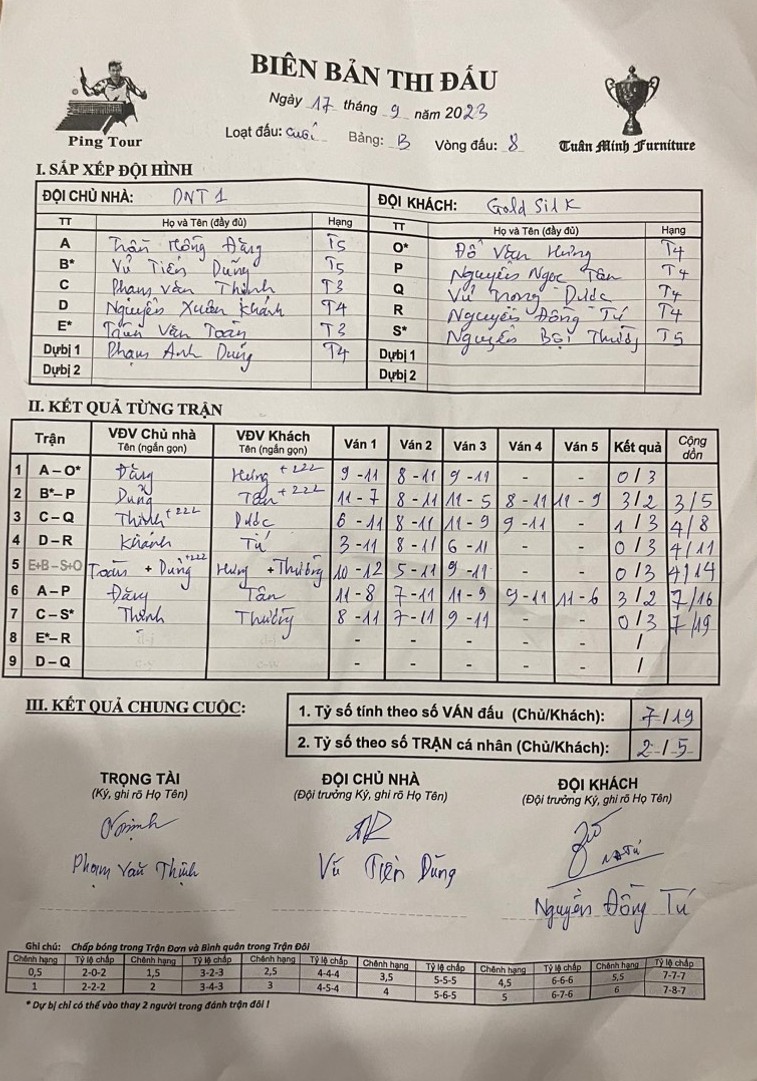 BIÊN BẢN THI ĐẤU
Ngày 17 tháng 9 năm 2023
Ping Tour
Loạt đấu: Cuối Bảng: B Vòng đấu: 8
Tuân Minh Furniture
I. SẮP XẾP ĐỘI HÌNH
ĐỘI CHỦ NHÀ: DNT 1 ĐỘI KHÁCH: Gold Silk
TT Họ và Tên (đầy đủ) Hạng TT Họ và Tên (đầy đủ) Hạng
A Trần Hồng Đăng T5 O* Đỗ Văn Hưng T4
B* Vũ Tiến Dũng T5 P Nguyễn Ngọc Tân T4
C Phạm Văn Thịnh T3 Q Vũ Trọng T4
D Nguyễn Xuân Khánh T4 R Nguyễn Đồng Tú T4
E* Trần Văn Toàn T3 S* Nguyễn Bội Thường T5
Dựbị 1 Phạm Anh Dũng T4 Dựbị 1
Dựbị 2 Dựbị 2
II. KẾT QUẢ TỪNG TRẬN
Trận VĐV Chủ nhà Tên (ngắn gọn) VĐV Khách Tên (ngắn gọn) Ván 1 Ván 2 Ván 3 Ván 4 Ván 5 Kết quả Cộng dồn
1 A – O* Đăng Hưng +222 9 - 11 8 - 11 9 - 11 - - 0 / 3
2 B* – P Dũng Tân +222 11 - 7 8 - 11 11 - 5 8 - 11 11 - 9 3 / 2 3 / 5
3 C – Q Thịnh +222 6 - 11 8 - 11 11 - 9 9 - 11 - 1 / 3 4 / 8
4 D – R Khánh Tú 3 - 11 8 - 11 6 - 11 - - 0 / 3 4 / 11
5 E+B – S+O Toàn + Dũng +222 Hưng + Thường 10 - 12 5 - 11 9 - 11 - - 0 / 3 4 / 14
6 A – P Đăng Tân 11 - 8 7 - 11 11 - 9 9 - 11 11 - 6 3 / 2 7 / 16
7 C – S* Thịnh Thường 8 - 11 7 - 11 9 - 11 - - 0 / 3 7 / 19
8 E* – R - - - - - /
9 D – Q - - - - - /
III. KẾT QUẢ CHUNG CUỘC:
1. Tỷ số tính theo số VÁN đấu (Chủ/Khách): 7 / 19
2. Tỷ số theo số TRẬN cá nhân (Chủ/Khách): 2 / 5
TRỌNG TÀI ĐỘI CHỦ NHÀ ĐỘI KHÁCH
(Ký, ghi rõ Họ Tên) (Đội trưởng Ký, ghi rõ Họ Tên) (Đội trưởng Ký, ghi rõ Họ Tên)
Phạm Văn Thịnh Vũ Tiến Dũng Nguyễn Đồng Tú
Ghi chú: Chấp bóng trong Trận Đơn và Bình quân trong Trận Đôi
Chênh hạng Tỷ lệ chấp Chênh hạng Tỷ lệ chấp Chênh hạng Tỷ lệ chấp Chênh hạng Tỷ lệ chấp Chênh hạng Tỷ lệ chấp Chênh hạng Tỷ lệ chấp
0,5 2-0-2 1,5 3-2-3 2,5 4-4-4 3,5 5-5-5 4,5 6-6-6 5,5 7-7-7
1 2-2-2 2 3-4-3 3 4-5-4 4 5-6-5 5 6-7-6 6 7-8-7
* Dự bị chỉ có thể vào thay 2 người trong đánh trận đôi !